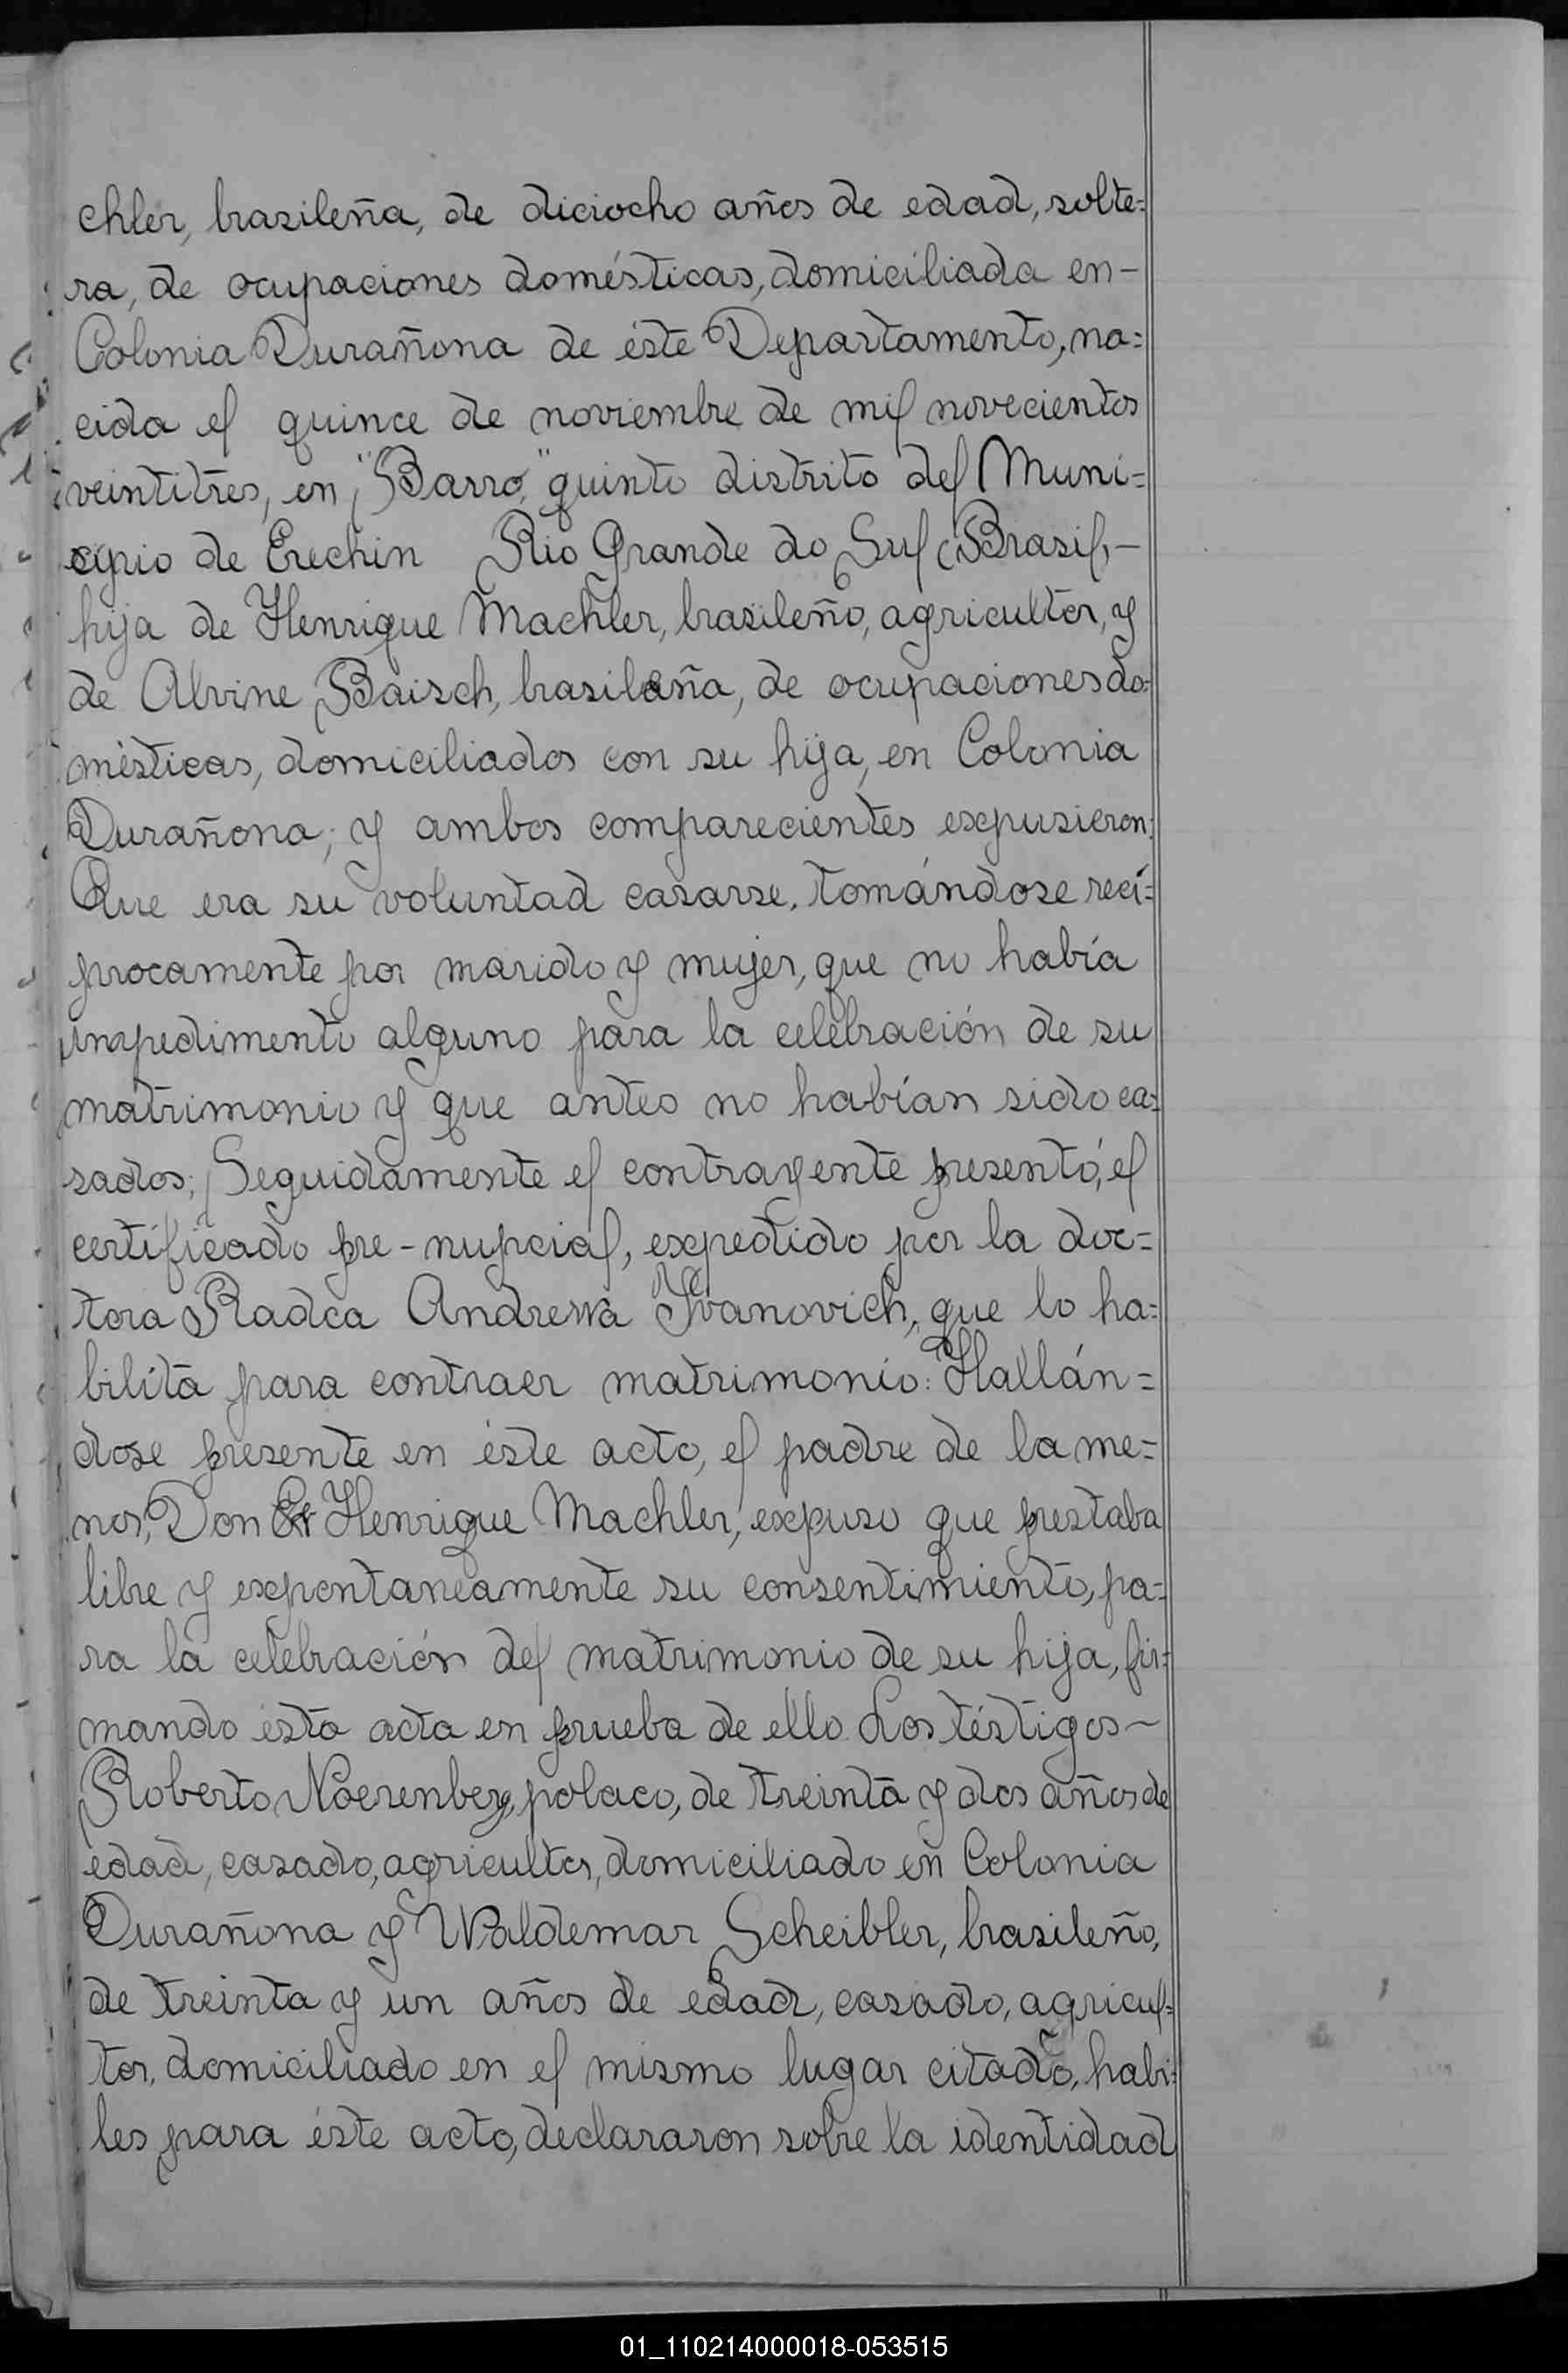 chler, brasileña, de diciocho años de edad, solte=
ra, de ocupaciones domésticas, domiciliada en-
Colonia Durañona de éste Departamento, na=
cida el quince de noviembre de mil novecientos
veintitres, en "Barro," quinto distrito del Muni=
cipio de Erechin Rio Grande do Sul (Brasil,-
hija de Henrique Machler, brasileño, agricultor, y
de Alvine Baisch, brasileña, de ocupaciones do=
mésticas, domiciliados con su hija, en Colonia
Durañona; y ambos comparecientes expusieron:
Que era su voluntad casarse, tomándose recí=
procamente por marido y mujer, que no había
impedimento alguno para la celebración de su
matrimonio y que antes no habían sido ca=
sados; Seguidamente el contrayente presentó, el
certificado pre-nupcial, expedido por la doc=
tora Radca Andrewa Ivanovich, que lo ha=
bilita para contraer matrimonio: Hallán=
dose presente en éste acto, el padre de la me=
nor, Don Henrique Machler, expuso que prestaba
libre y expontaneamente su consentimiento, pa=
ra la celebración del matrimonio de su hija, fir=
mando ésta acta en prueba de ello. Los téstigos-
Roberto Noerenberg, polaco, de treinta y dos años de
edad, casado, agricultor, domiciliado en Colonia
Durañona y Waldemar Scheibler, brasileño,
de treinta y un años de edad, casado, agricul=
tor, domiciliado en el mismo lugar citado, habi=
les para éste acto, declararon sobre la identidad
01_110214000018-053515